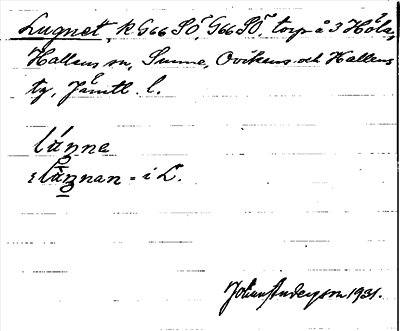 Lugnet, K G66 SÖ, G66 SÖ, torp å 3 Höla,
Hallens sn, Sunne, Ovikens och Hallens
tg, Jämtl. l.
lúnna
lùnnan = i L.
Johan Anderson 1931.